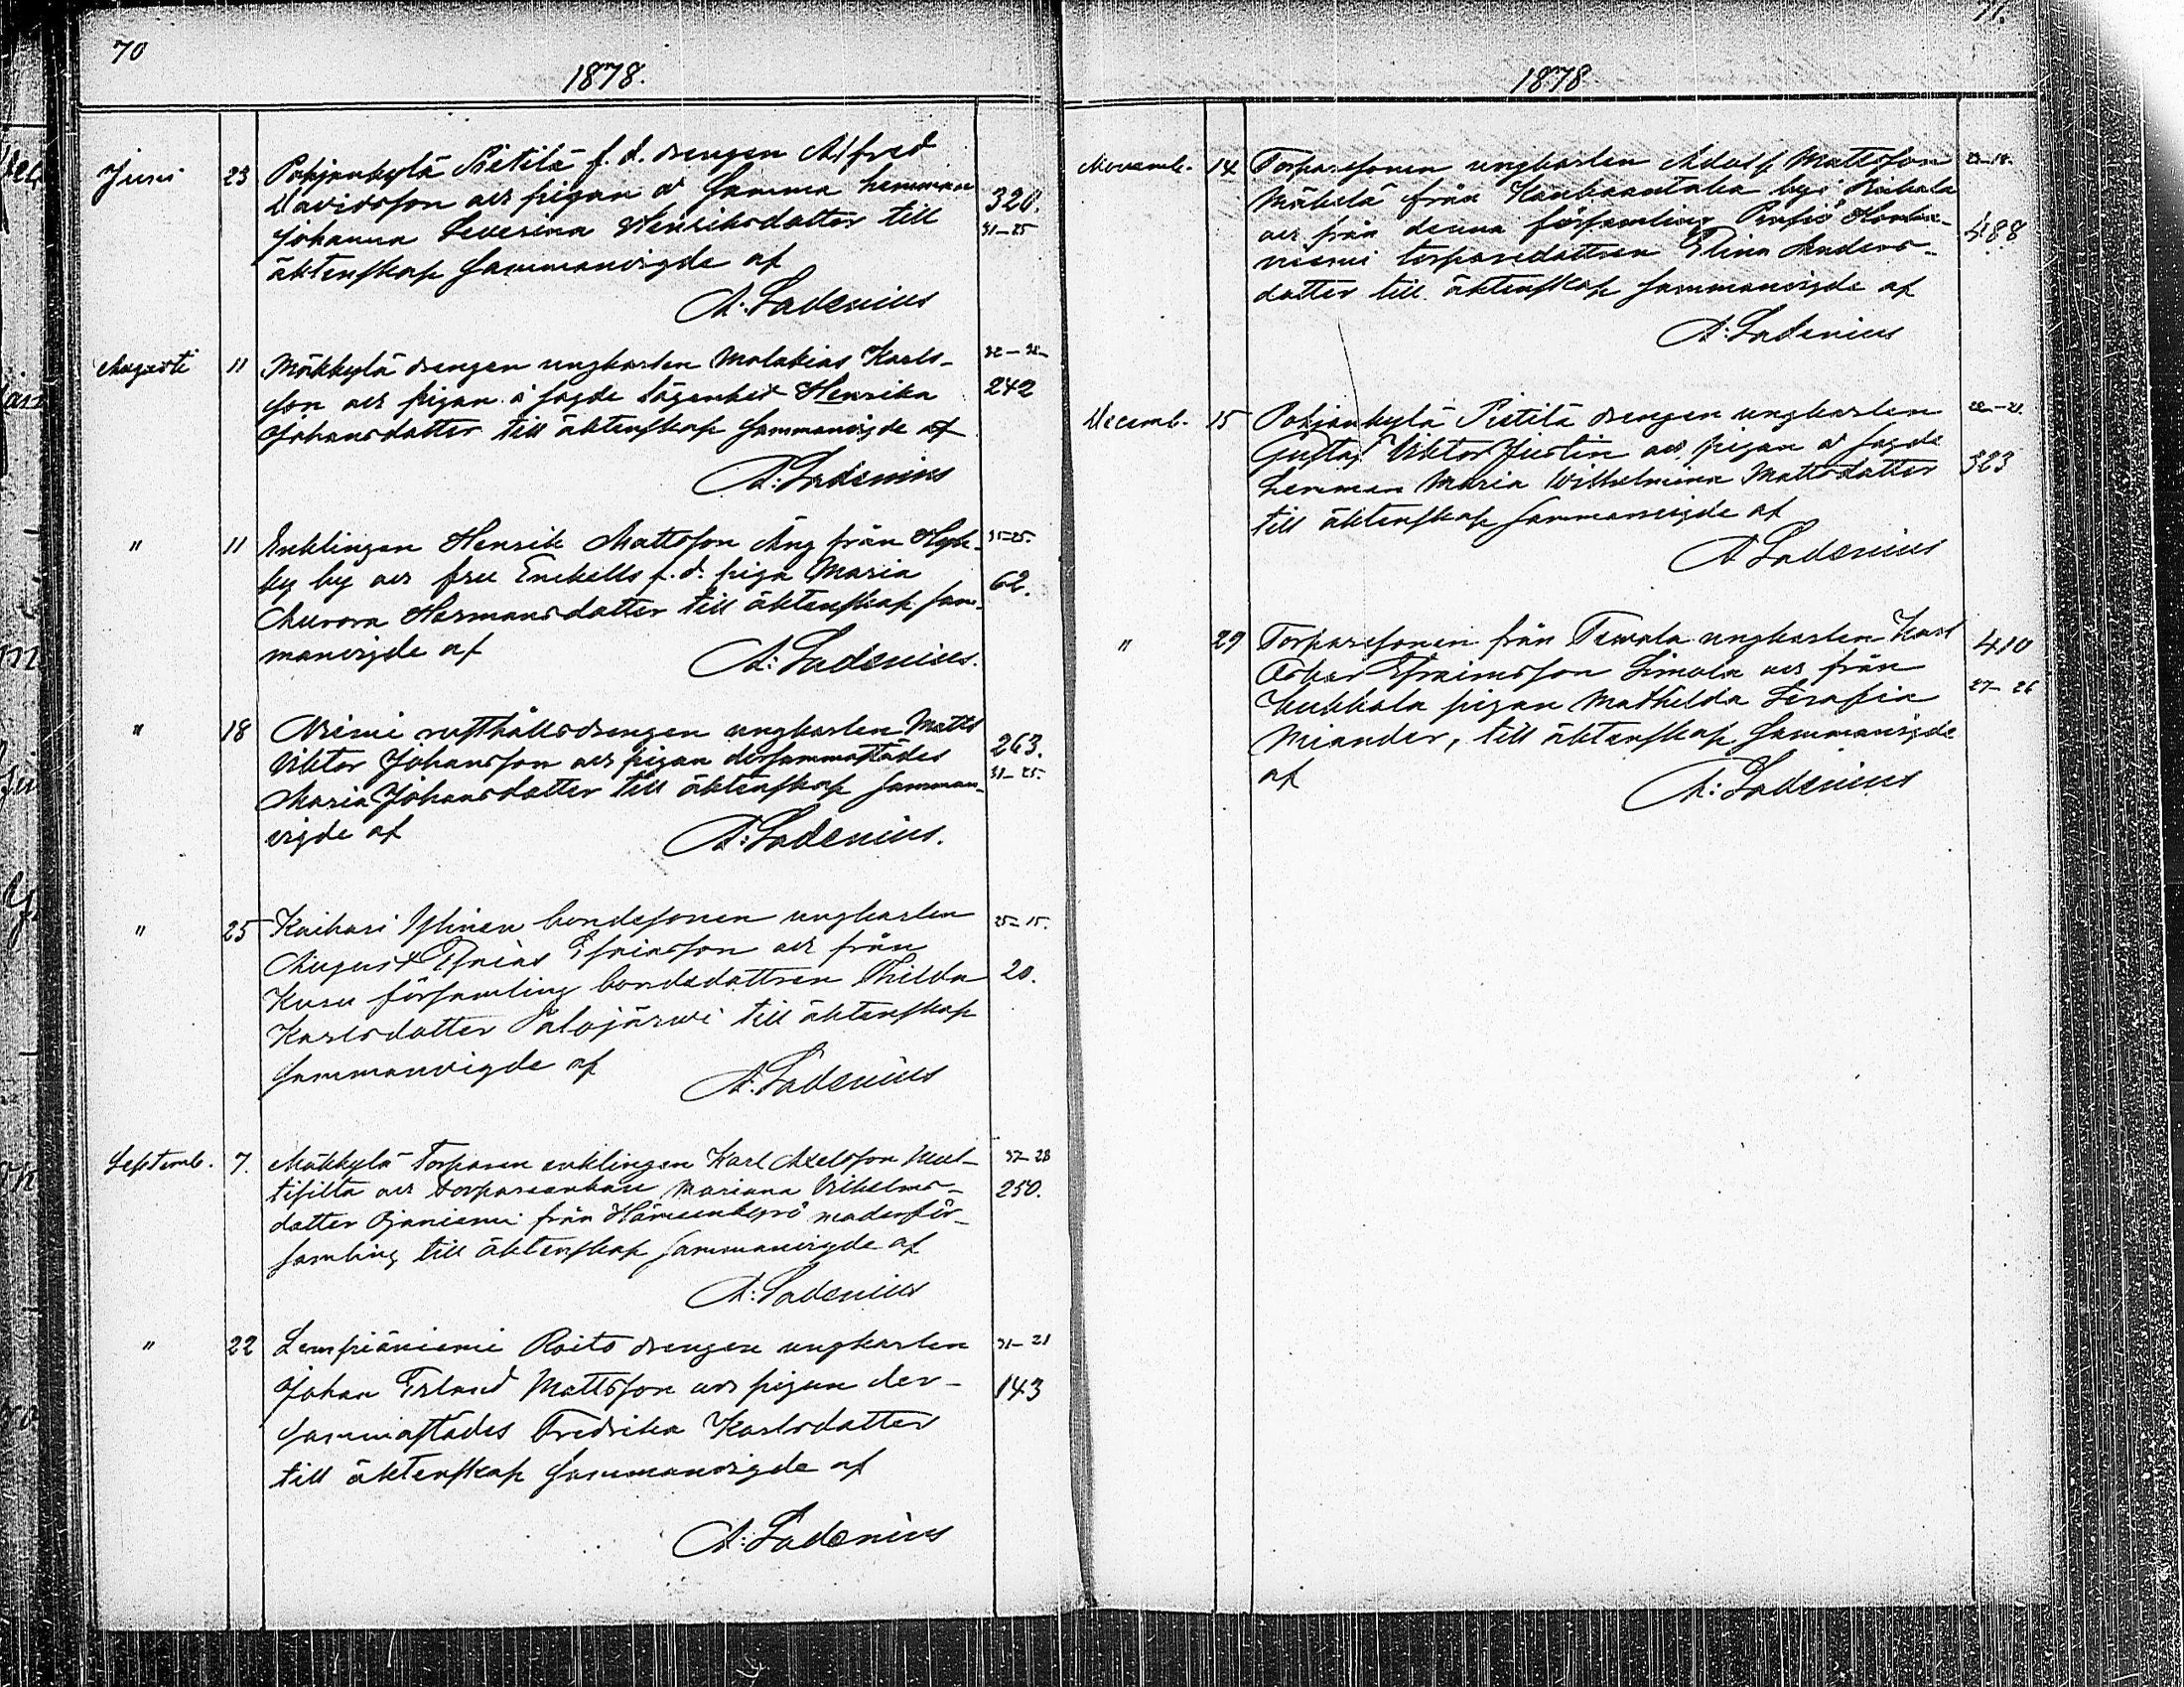 70
1878.
Juni 23 Pohjankylä Pietilä f. d. drengen Alfred
Davidsson och pigan å samma hemman 320.
Johanna Severina Henriksdotter till 31-25
äktenskap sammanvigde af
A. Ladenius
Augusti 11 Mäkkylä drengen ungkarlen Malakias Karls-
son och pigan å sagde lägenhet Henrika 242
Johansdotter till äktenskap sammanvigde af
A: Ladenius
" 11 Enklingen Henrik Mattsson Äng från
by och fru Enckells f. d. piga Maria 62.
Aurora Hermansdotter till äktenskap sam-
manvigde af A: Ladenius.
" 18 Niemi rusthållsdrengen ungkarlen Matts
Viktor Johansson och pigan dersammastädes 263.
Maria Johansdotter till äktenskap samman- 31-25.
vigde af A: Ladenius.
" 25 Kaihari Yllinen bondesonen ungkarlen 25-15.
August och från
Kuru församling bondedottren Hilda 20.
Karlsdotter Palojärwi till äktenskap
sammanvigde af A: Ladenius
Septemb. 7. Mäkkylä Torparen enklingen Karl Axelsson Mul-
tisilta och torpareenkan Mariana Vilhelms- 250.
dotter Ojaniemi från Hämeenkyrö moderför-
samling till äktenskap sammanvigde af
A: Ladenius
" 22 Lempiäniemi Roito drengen ungkarlen 31-21
Johan Erland Mattsson och pigan der- 143
sammastädes Fredrika Karlsdotter
till äktenskap sammanvigde af
A: Ladenius
71.
1878
Novemb. 14 Torparesonen ungkarlen Adolf Mattsson
Mäkelä från by i
och från denna församling
niemi torparedottren Elina Anders- 488
dotter till äktenskap sammanvigde af
A: Ladenius
Decemb. 15 Pohjankylä Pietilä drengen ungkarlen
Gustaf Viktor Justin och pigan å sagde
hemman Maria Wilhelmina Mattsdotter 323
till äktenskap sammanvigde af
A Ladenius
" 29 Torparesonen från ungkarlen Karl 410
Oskar Efraimsson Simola och från
pigan Mathilda Serafia 27-26
Miander, till äktenskap sammanvigde
af A: Ladenius